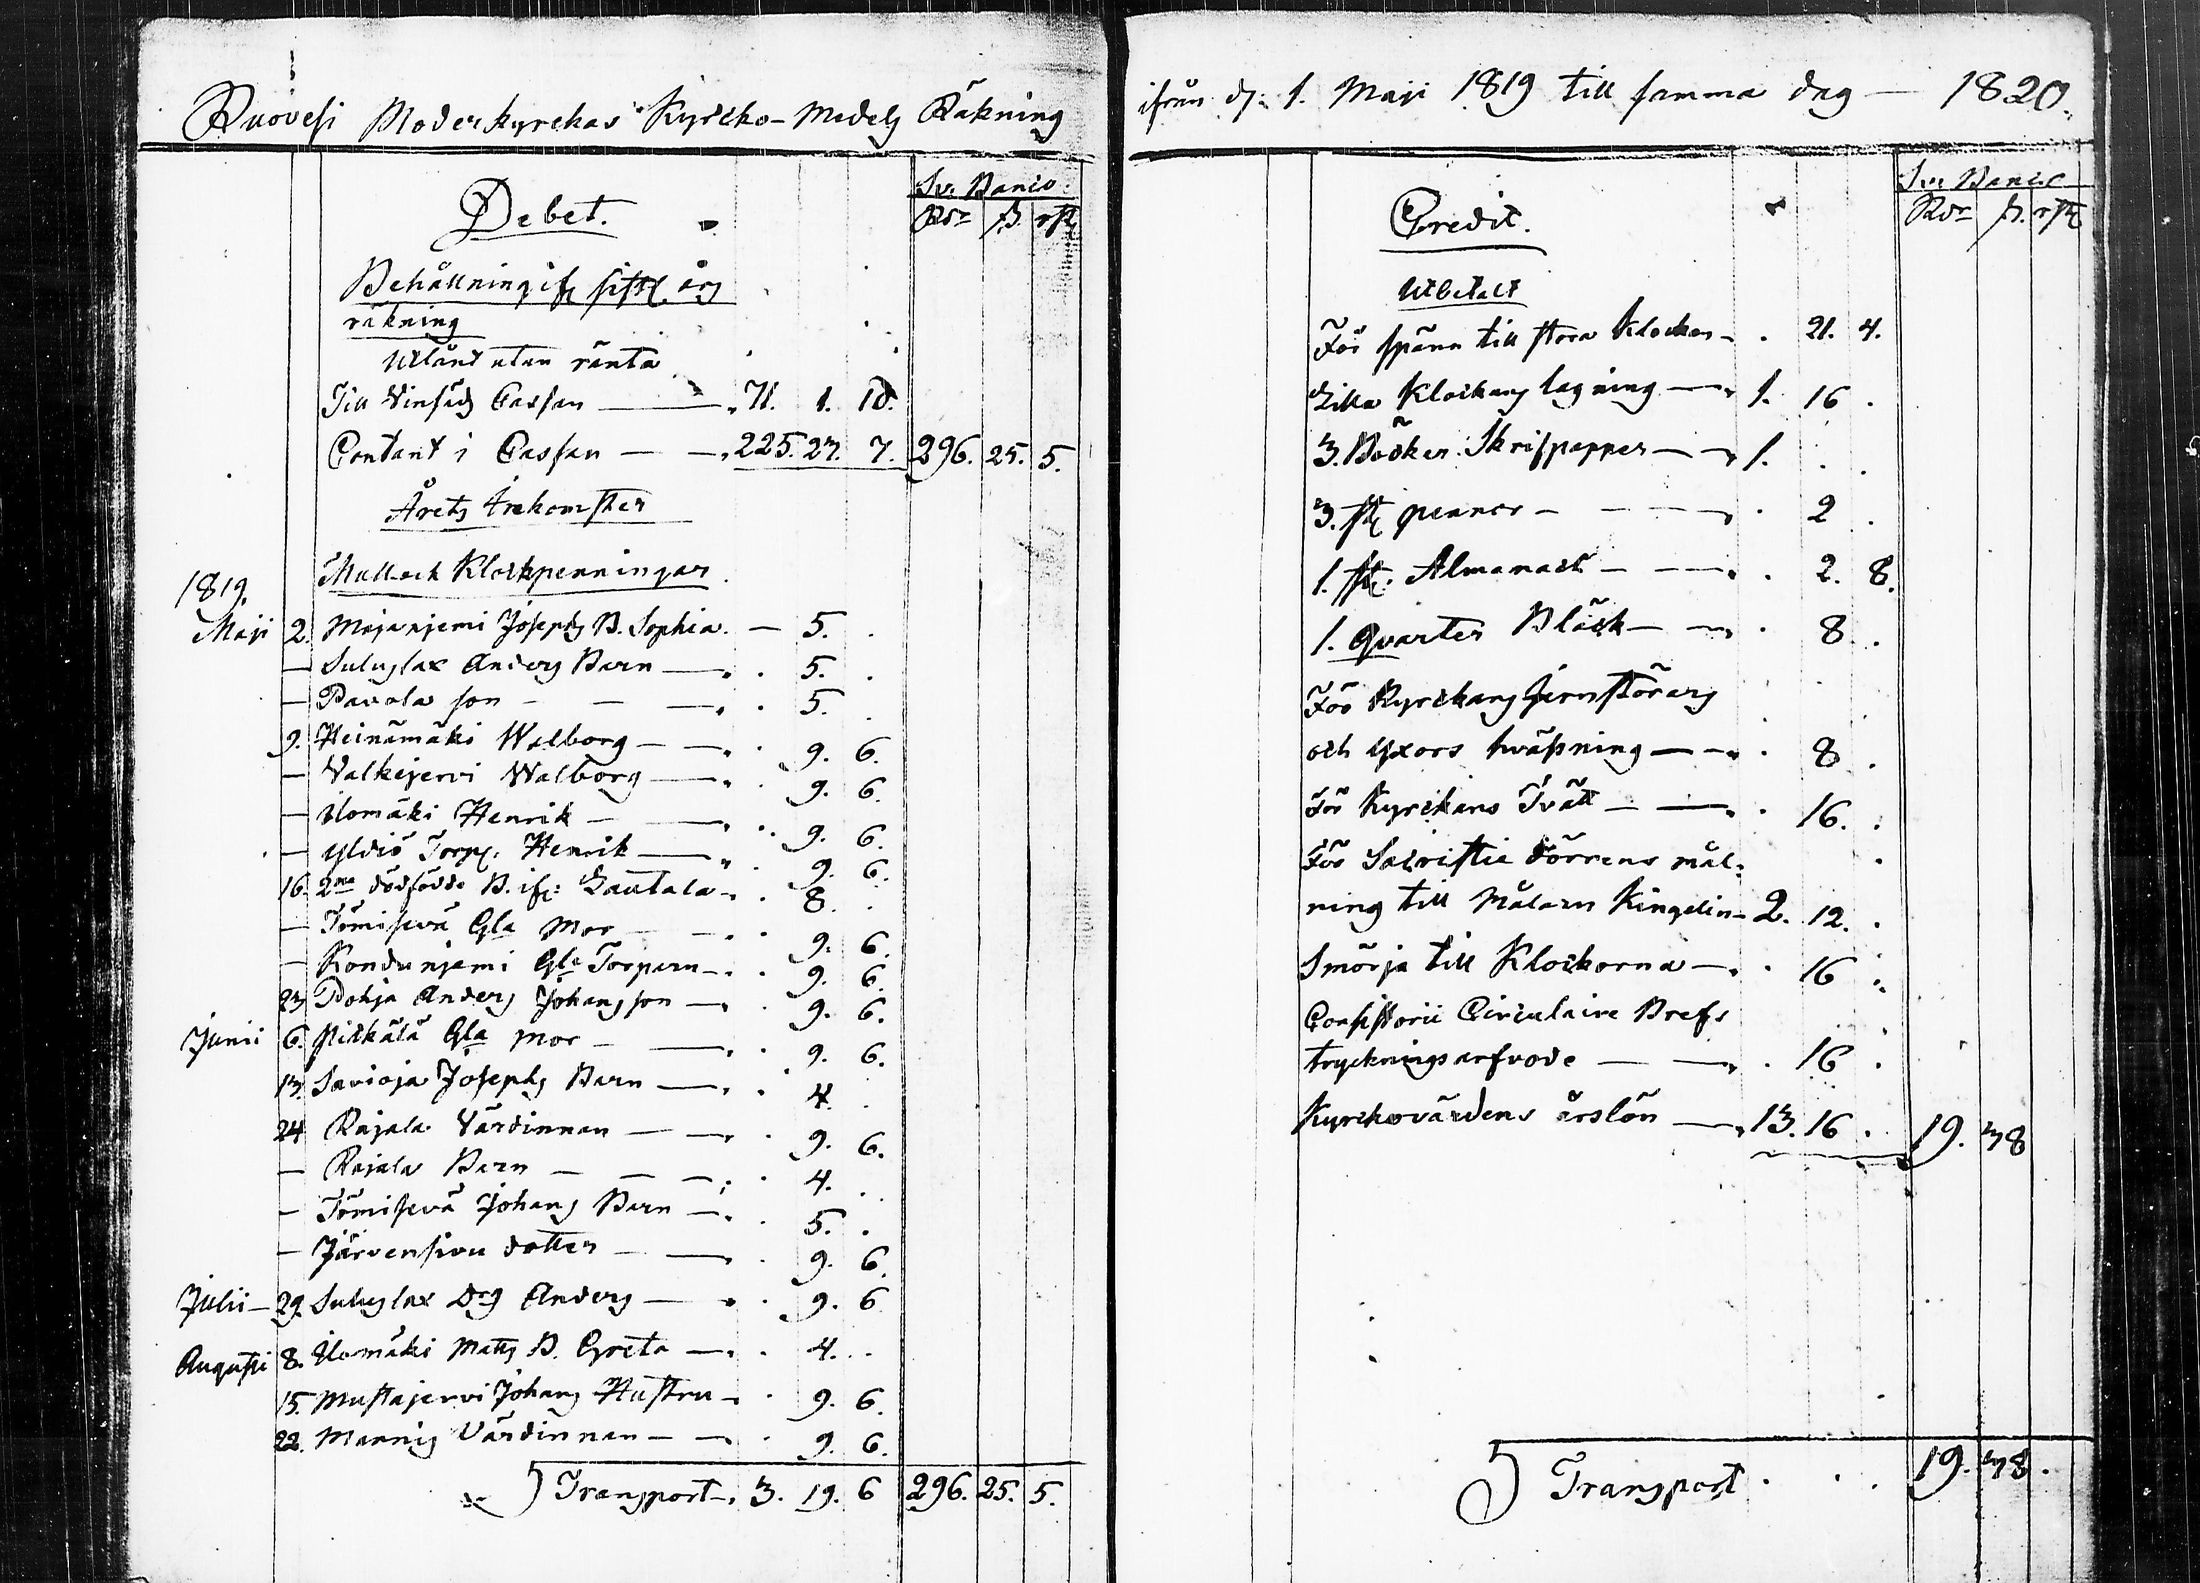 Ruovesi Moderkyrckas Kyrcko-Medels Räkning
Debet.
Sv. Banco
Rdr ß. rst
Behållning ifr sistl. års
räkning
Utlånt utan ränta
Till Cassan — 71. 1. 10.
Contant i Cassan — 225. 23. 7. 296. 25. 5.
Årets Inkomster
1819. Mull och Klockpenningar
Maji 2. Majaniemi Josephs B. Sophia. — 5. .
— Suluslax Anders Barn — . 5. .
— Pavola son — . 5. .
9. Heinämäki Walborg — . 9. 6.
— Valkejervi Walborg — . 9. 6.
— Ilomäki Henrik — . 9. 6.
— Yldiö Torp. Henrik — . 9. 6.
16. 2ne dödfödde B. ifr: Lautala — . 8. .
— Tömisevä Gla Mor — . 9. 6.
— Konduniemi Gla Torparn — . 9. 6.
23 Pohja Anders Johansson — . 9. 6.
Junii 6. Pitkälä Gla Mor — . 9. 6.
13. Savioja Josephs Barn — . 4. .
24 Rajala Värdinnan — . 9. 6.
— Rajala Barn — . 4. .
— Tömisevä Johans Barn — . 5. .
— Järvensivu dotter — . 9. 6.
Julii — 29. Suluslax Drg Anders — . 9. 6
Augusti 8. Ilomäki Matts B. Greta — . 4. .
15. Mustajervi Johans Hustru — . 9. 6.
22. Mannis Värdinnan — . 9. 6.
Transport — 3. 19. 6 296. 25. 5.
ifrån d: 1. Maji 1819 till samma dag — 1820.
Credit.
Sv. Banco
Rdr ß. rst
Utbetalt
För spänn till stora Klockan — . 21. 4.
Lilla Klockans lagning — 1. 16 .
3. Böcker Skrifpapper — 1. . .
3. st pennor — . 2 .
1. st. Almanach — . 2. 8.
1. Qvarter Bläck — . 8. .
För Kyrckans jernstörars
och yxors hväsning — . 8 .
För Kyrckans Tvätt — . 16. .
För Sacristie dörrens mål-
ning till Målarn Kingelin — 2. 12. .
Smörja till Klockorna — . 16 .
Consistorii Circulaire Brefs
tryckningsarfvode — . 16 .
Kyrckovärdens årslön — 13. 16 . 19. 38
Transport . . . 19. 38.